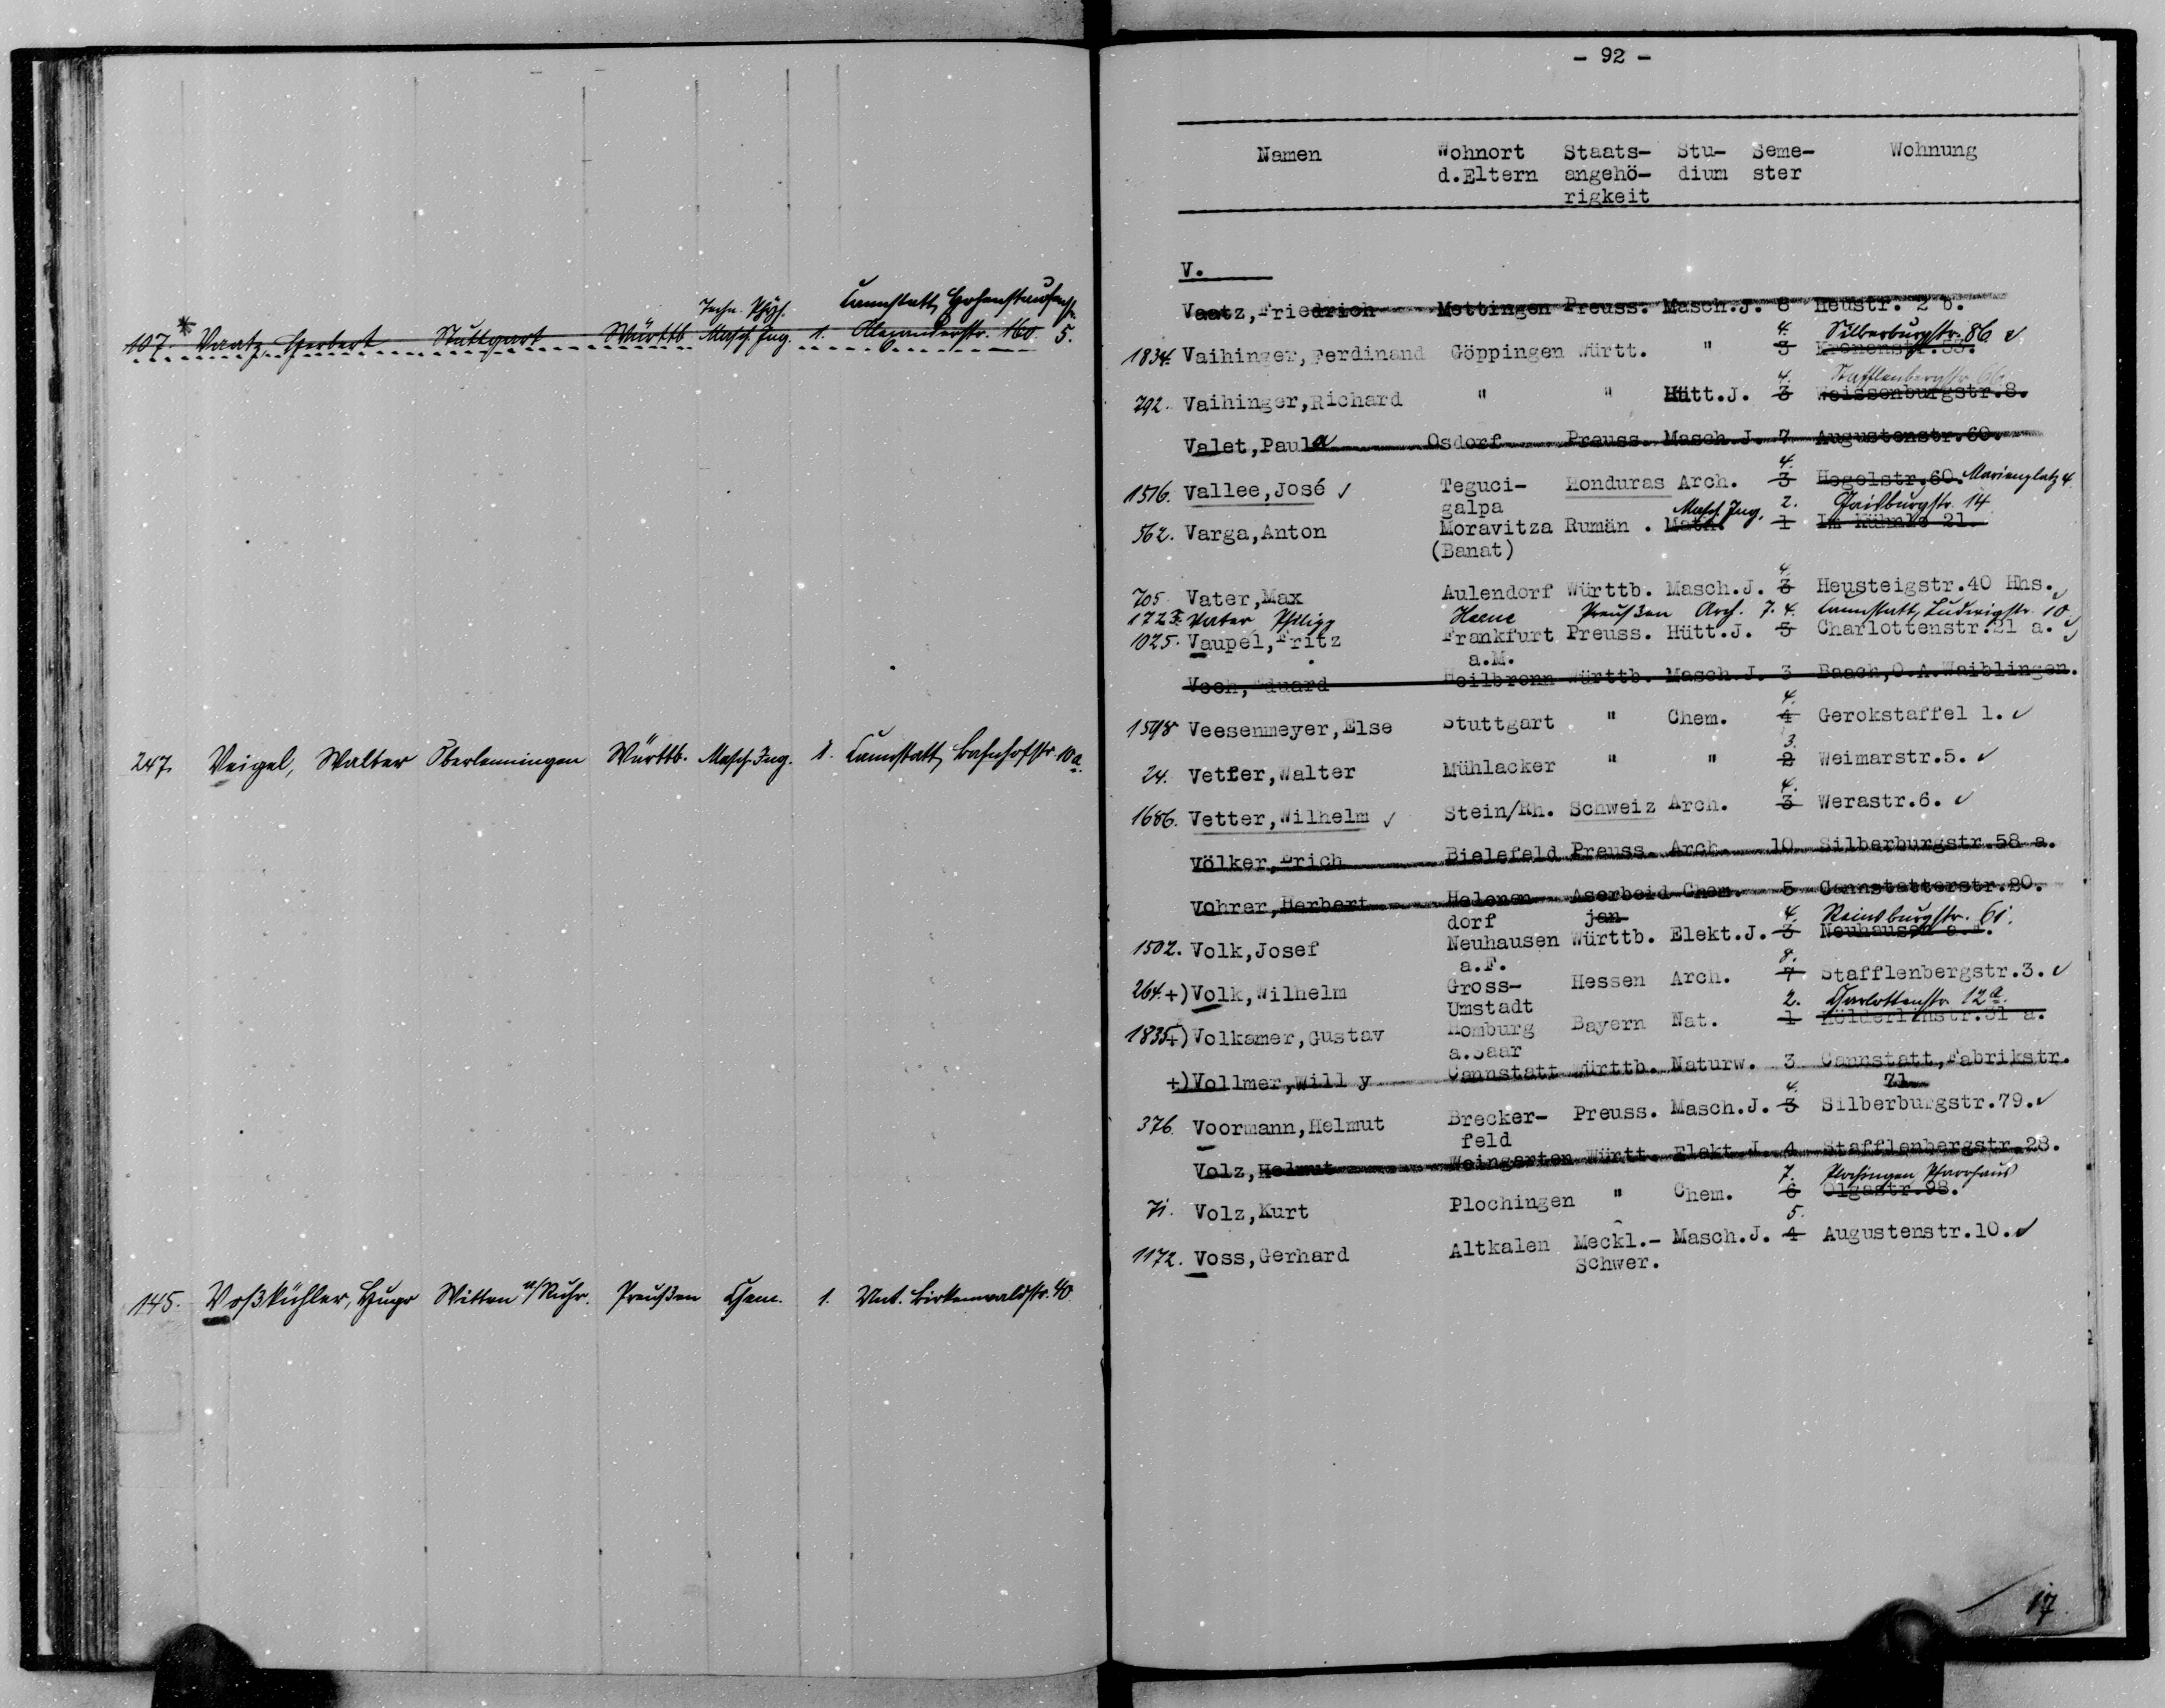 Techn. Phys. Cannstatt, Hohenstaufenstr.
107. * Vaatz, Herbert Stuttgart Württb. Masch. Ing. 1. Alexanderstr. 160. 5.
247. Veigel, Walter Oberlenningen Württb. Masch. Ing. 1. Cannstatt, Bahnhofstr. 10a.
145. Voßkühler, Hugo Witten a/Ruhr. Preußen Chem. 1. Unt. Birkenwaldstr. 40
- 92 -
Namen Wohnort Staats- Stu- Seme- Wohnung
d.Eltern angehö- dium ster
rigkeit
V.
Vaatz, Friedrich Mettingen Preuss. Masch.J. 8 Heustr. 2 b.
4. Silberburgstr. 86 ✓
1834. Vaihinger, Ferdinand Göppingen Württ. " 3 Kronenstr.33.
4. Stafflenbergstr.
292. Vaihinger, Richard " " Hütt.J. 3 Weissenburgstr.8.
Valet, Paula Osdorf Preuss. Masch.J. 7 Augustenstr.60.
4.
1516. Vallee, José ✓ Teguci- Honduras Arch. 3 Hegelstr.60. Marienplatz 4.
galpa Masch. Ing. 2. Gaisburgstr. 14
562. Varga, Anton Moravitza Rumän . Math. 1 Im 21.
(Banat)
4.
705. Vater, Max Aulendorf Württb. Masch.J. 3 Heusteigstr.40 Hhs. ✓
1723. Vater Philipp Herne Preußen Arch. 7. 4. Cannstatt, Ludwigstr. 10
1025. Vaupel, Fritz Frankfurt Preuss. Hütt.J. 5 Charlottenstr.21 a. ✓
a.M.
Veeh, Eduard Heilbronn Württb. Masch.J. 3 Baach, O.A.Waiblingen.
4.
1598 Veesenmeyer, Else Stuttgart " Chem. 4 Gerokstaffel 1. ✓
3.
24. Vetter, Walter Mühlacker " " 2 Weimarstr.5. ✓
4.
1686. Vetter, Wilhelm ✓ Stein/Rh. Schweiz Arch. 3 Werastr.6. ✓
Völker, Erich Bielefeld Preuss. Arch. 10 Silberburgstr.58 a.
Vohrer, Herbert Helenen- Aserbeid Chem. 5 Cannstatterstr.20.
dorf jan 4. Reinsburgstr. 61.
1502. Volk, Josef Neuhausen Württb. Elekt.J. 3 Neuhausen a.F.
a.F. 8.
264. +) Volk, Wilhelm Gross- Hessen Arch. 7 Stafflenbergstr.3. ✓
Umstadt 2. Charlottenstr. 12a.
1835 +) Volkamer, Gustav Homburg Bayern Nat. 1 Hölderlinstr.31 a.
a.Saar
+) Vollmer, Will y Cannstatt Württb. Naturw. 3 Cannstatt, Fabrikstr.
4. 71
376. Voormann, Helmut Brecker- Preuss. Masch.J. 3 Silberburgstr.79. ✓
feld
Volz, Helmut Weingarten Württ. Elekt.J. 4 Stafflenbergstr.28.
7. Plochingen Pfarrhaus
71. Volz, Kurt Plochingen " Chem. 6 Olgastr.98.
5.
1172. Voss, Gerhard Altkalen Meckl.- Masch.J. 4 Augustenstr.10. ✓
Schwer.
17.